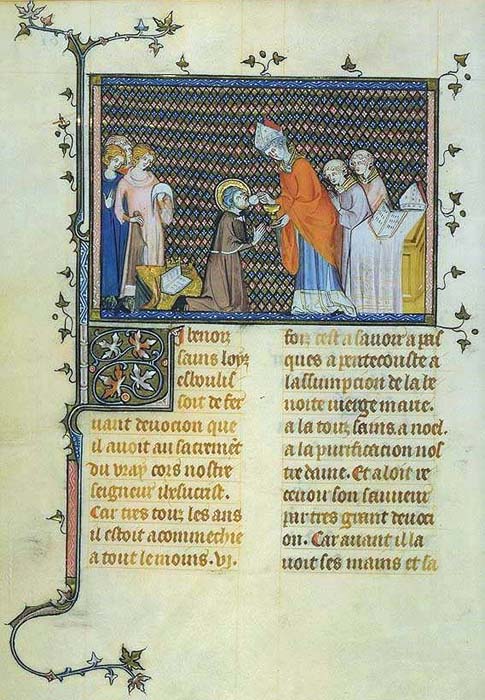 i benoiz
sains loÿs
esboulis
soit de fer
uant deuocion que
il auoit au sacremēt
du vray cors nostre
seigneur ihesucrist.
Car tres touz les ans
il estoit acommechie
a tout le moins .vi.
foiz cest a sauoir a pas
ques a penthecouste a
lassumpcion de la be
noite vierge marie.
a la touz sains. a noel.
a la purificacion nos
tre dame. Et aloit re
ceuoir son sauueur
par tres grant deuoci
on. Car auant il la
uoit ses mains et sa